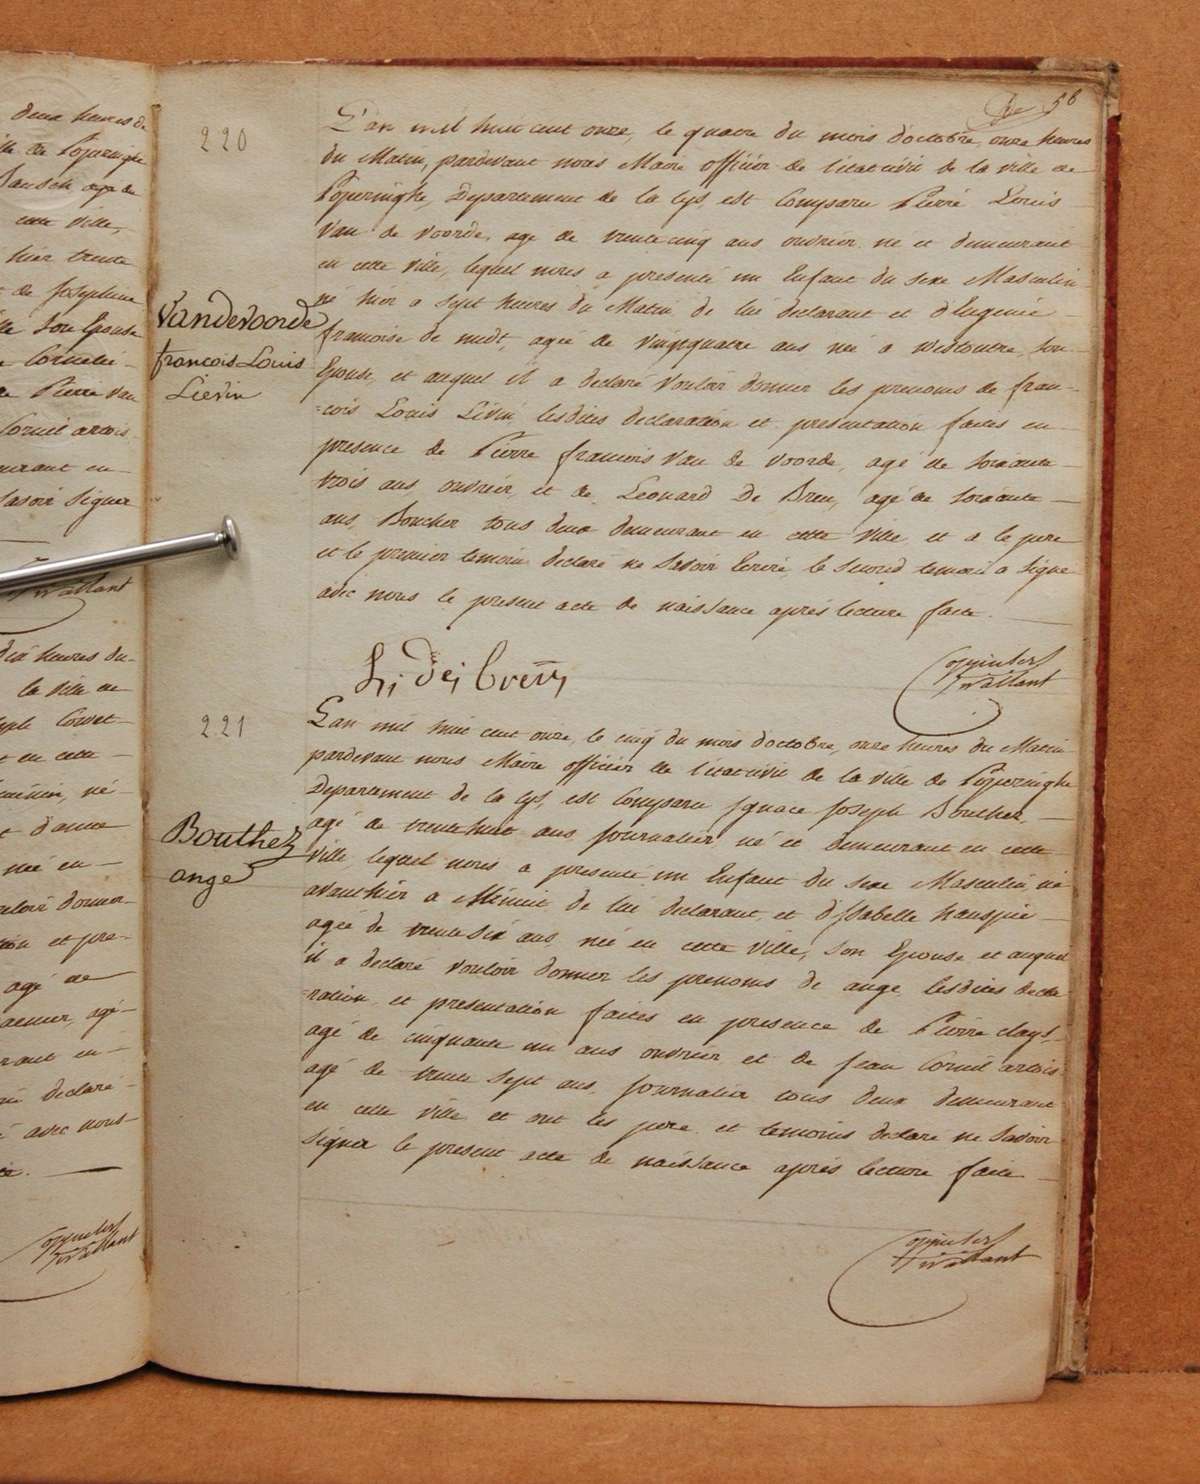 deux heures de
ville de Poperinghe
agé de
cette ville,
hier trente
et de Josephine
son Epouse
Corneli-
de Pierre Van
Corneil artois
demeurant en
savoir signer
Vaillant
dix heures du
la ville de
en cette
né
d'anne
née en
vouloir donner
et pre-
agé de
agé
demeurant en
declaré
avec nous
Vaillant
58
220
L'an mil huit cent onze, le quatre du mois d'octobre, onze heures
du Matin, pardevant nous Maire officier de l'état civil de la ville de
Poperinghe, Departement de la Lys, est Comparu Pierre Louis
Van de Voorde, agé de trente cinq ans ouvrier né et demeurant
en cette ville, lequel nous a presenté un Enfant du sexe Masculin
né hier a sept heures du Matin de lui declarant et d'Eugenie
francoise de medt, agée de vingtquatre ans née a Westoutre, son
Epouse, et auquel il a declaré vouloir donner les prenoms de fran-
=cois Louis Livin, lesdites declaration et presentation faites en
presence de Pierre francois Van de Voorde, agé de soixante
trois ans ouvrier, et de Leonard De Breu, agé de soixante
ans, Boucher tous deux demeurant en cette ville et a le pere
et le premier temoin declaré ne savoir Ecrire, le second temoin a signé
avec nous le present acte de naissance après lecture faite.
Vandevoorde
francois Louis
Lievin
L; de; breu;
Vaillant
221
L'an mil huit cent onze, le cinq du mois d'octobre, onze heures du Matin
pardevant nous Maire officier de l'état civil de la ville de Poperinghe
Departement de la Lys, est Comparu Ignace Joseph Bouthez
agé de trente huit ans journalier né et demeurant en cette
ville lequel nous a presenté un Enfant du sexe Masculin né
avanthier a Minuit de lui declarant et d'Isabelle hauspie
agée de trente six ans née en cette ville, son Epouse et auquel
il a declaré vouloir donner les prenoms de ange, lesdites decla-
=ration et presentation faites en presence de Pierre clays
agé de cinquante un ans ouvrier et de Jean Corneil artois
agé de trente sept ans, journalier tous deux demeurant
en cette ville et ont les pere et temoins declaré ne savoir
signer le present acte de naissance après lecture faite
Bouthez
ange
Vaillant